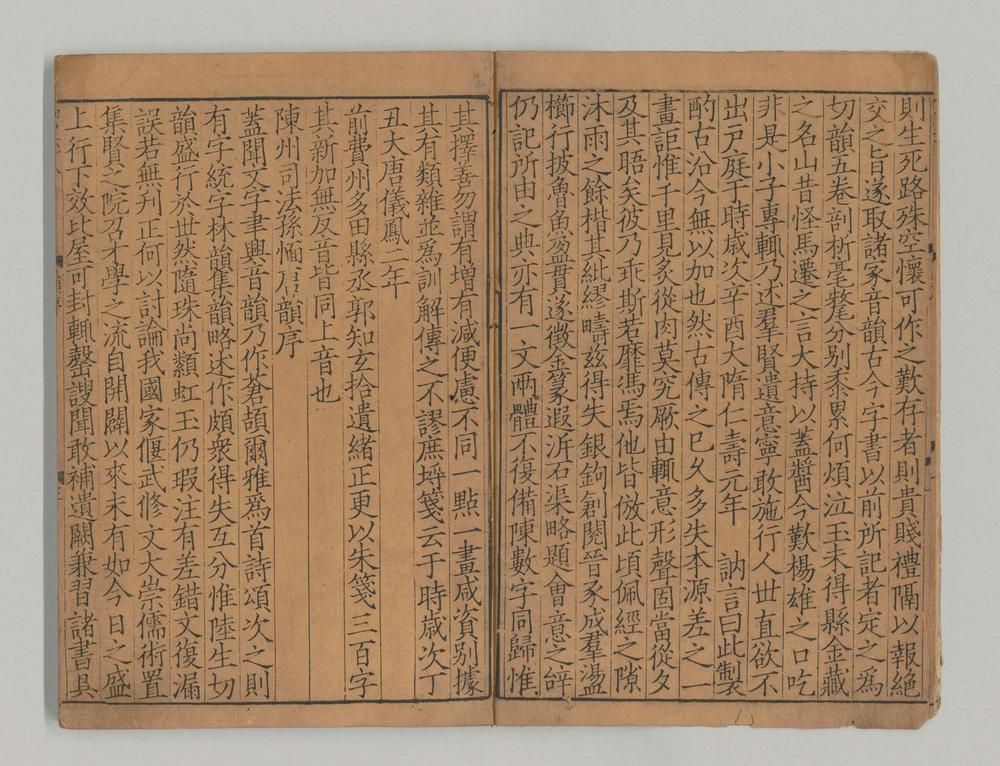 則生死路殊空懷可作之歎存者則貴賤禮隔以報絕
交之旨遂取諸家音韻古今字書以前所記者定之爲
切韻五卷剖析毫氂分別黍累何煩泣玉未得縣金藏
之名山昔怪馬遷之言大持以蓋醬今歎楊雄之口吃
非是小子專輒乃述羣賢遺意寧敢施行人世直欲不
出戶庭于時歲次辛酉大隋仁壽元年 訥言曰此製
酌古沿今無以加也然古傳之已久多失本源差之一
畫詎惟千里見炙從肉莫究厥由輒意形聲固當從夕
及其晤矣彼乃乖斯若靡馮焉他皆倣此頃佩經之隙
沐雨之餘楷其紕繆疇茲得失銀鉤創閱晉豕成羣盪
櫛行披魯魚盈貫遂徵金篆遐泝石渠略題會意之辝
仍記所由之典亦有一文兩體不復備陳數字同歸惟
其擇善勿謂有增有減便慮不同一點一畫咸資別據
其有類雜並爲訓解傳之不謬庶埒箋云于時歲次丁
丑大唐儀鳳二年
前費州多田縣丞郭知玄拾遺緒正更以朱箋三百字
其新加無反音皆同上音也
陳州司法孫愐唐韻序
蓋聞文字聿興音韻乃作蒼頡爾雅爲首詩頌次之則
有字統字林韻集韻略述作頗衆得失互分惟陸生切
韻盛行於世然隨珠尚纇虹玉仍瑕注有差錯文復漏
誤若無刊正何以討論我國家偃武修文大崇儒術置
集賢之院召才學之流自開闢以來未有如今日之盛
上行下效比屋可封輒罄謏聞敢補遺闕兼習諸書具